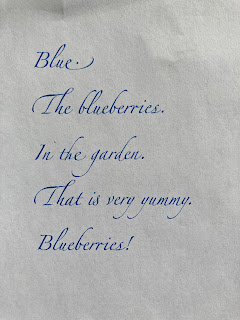 Blue.
The blueberries.
In the garden.
That is very yummy.
Blueberries!